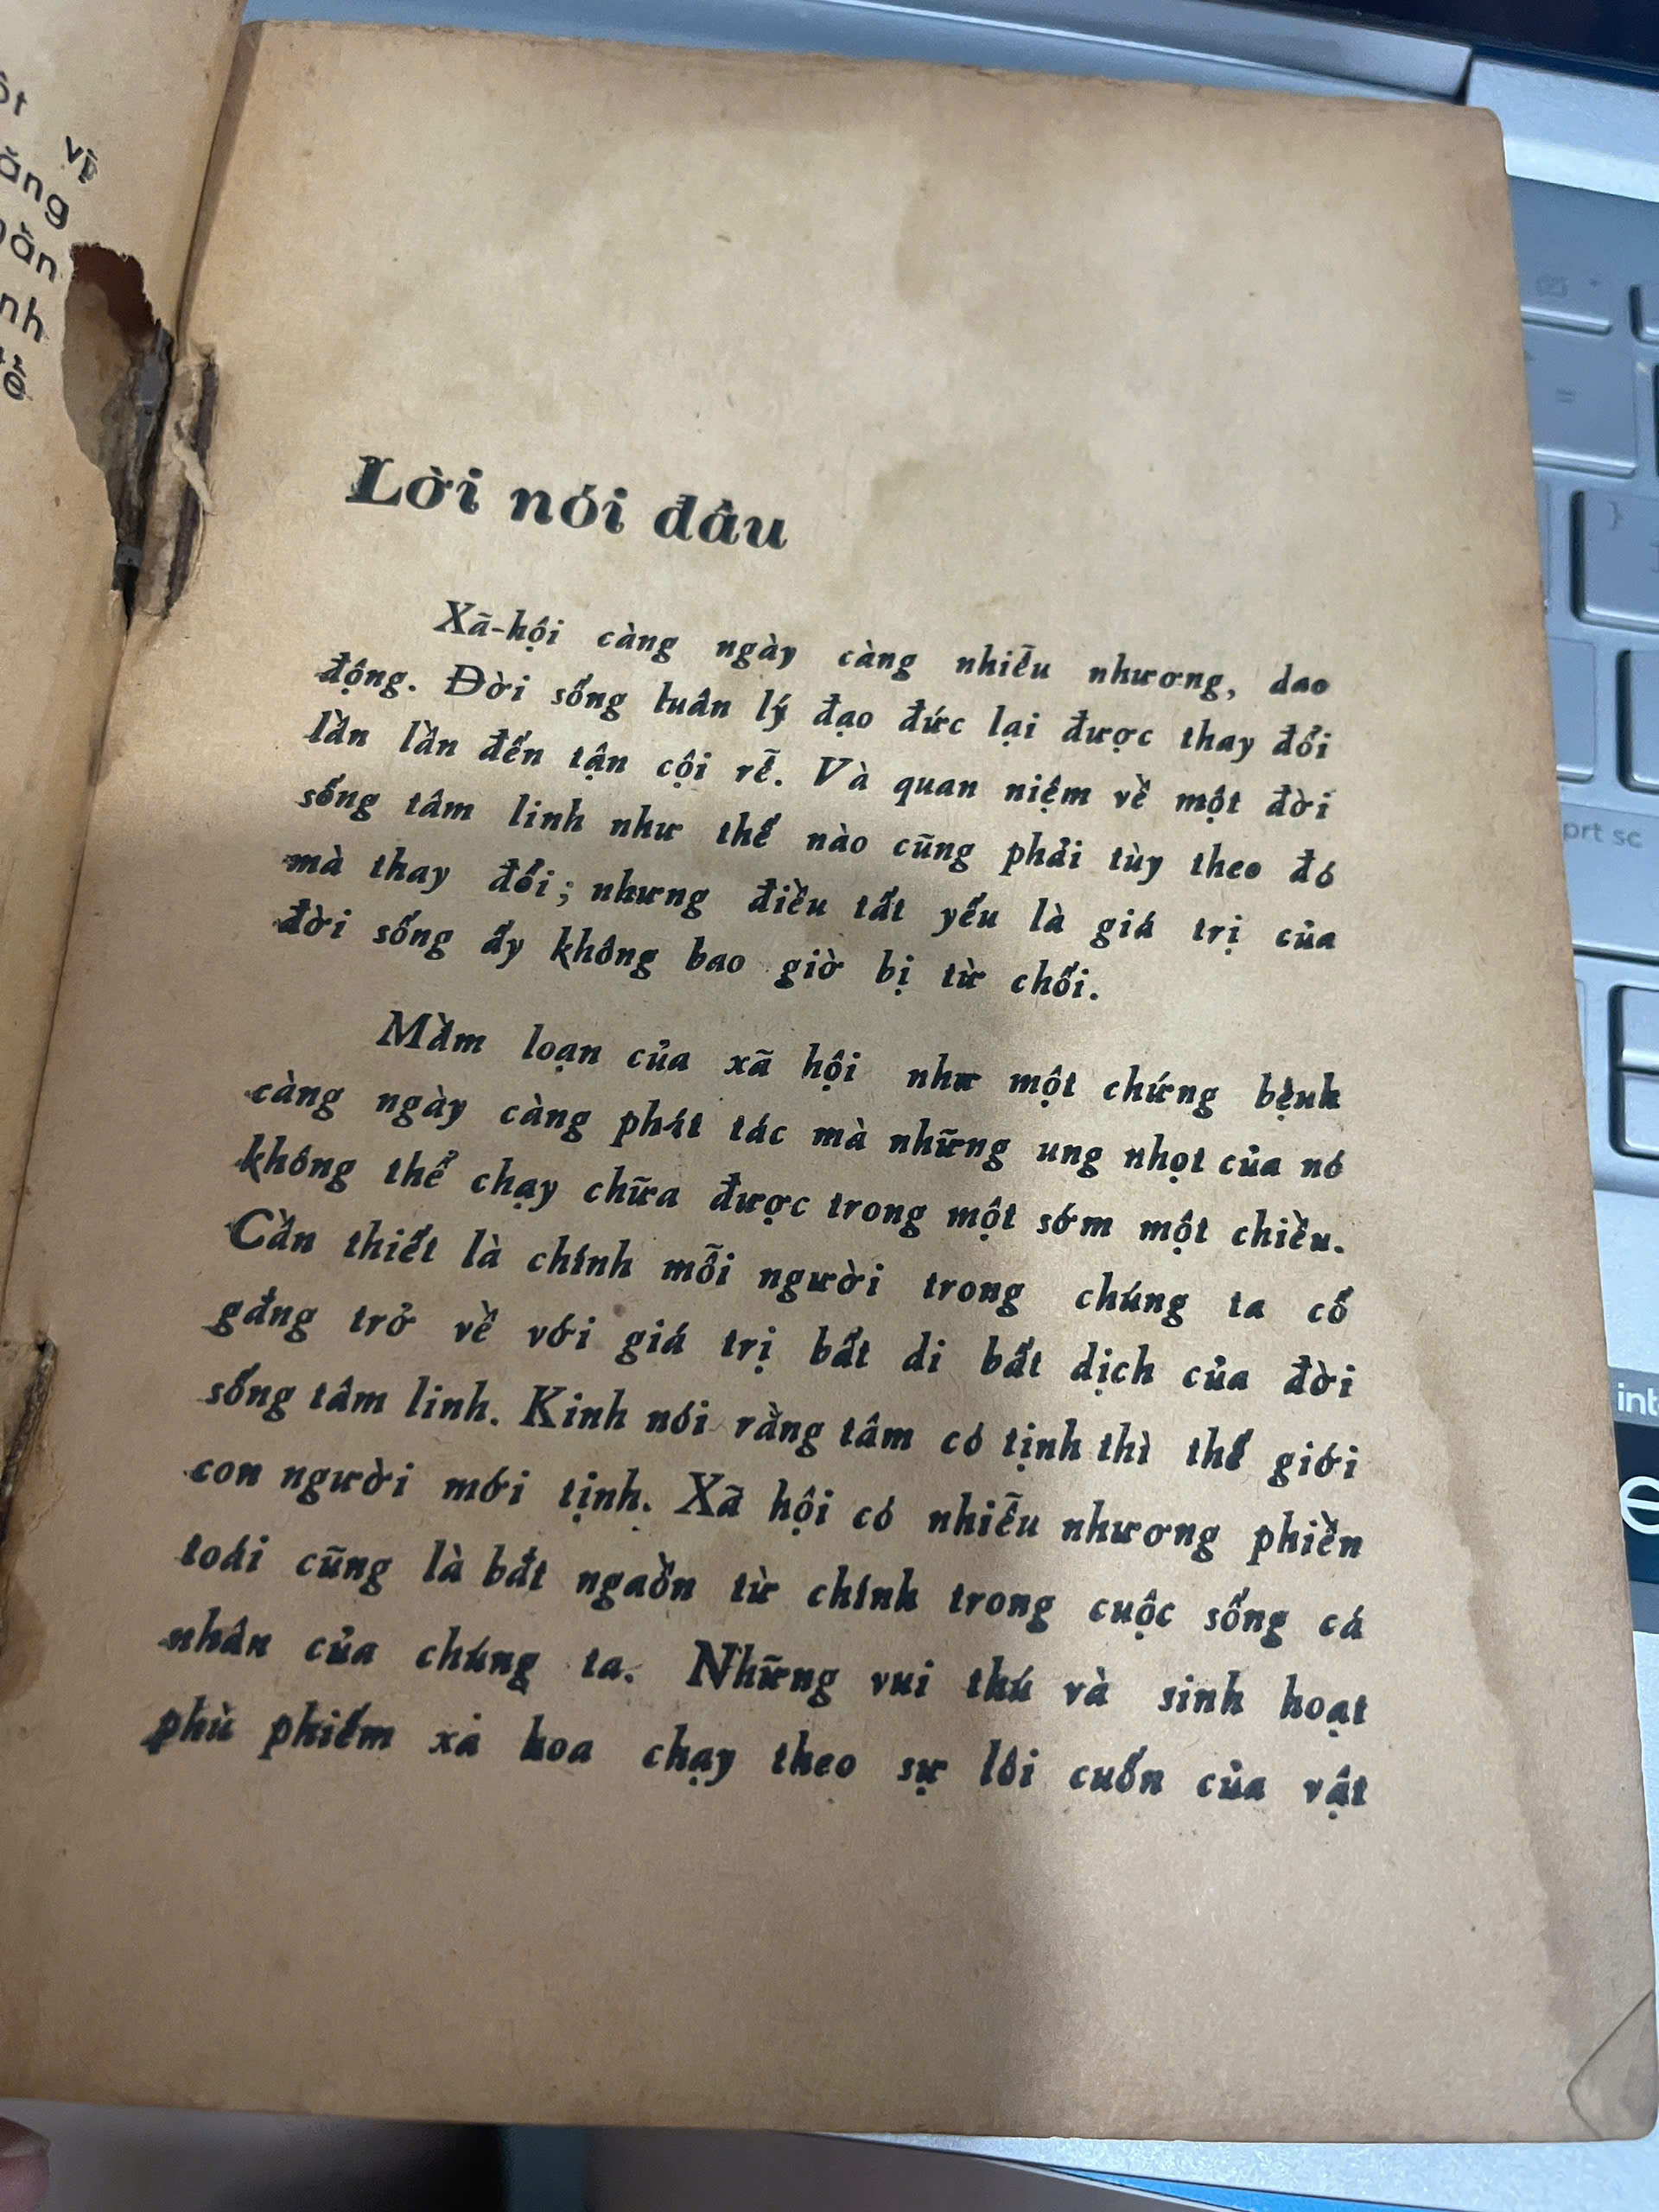 ột vị
ăng
nh
Lời nói đầu
Xã-hội càng ngày càng nhiễu nhương, dao
động. Đời sống luân lý đạo đức lại được thay đổi
lần lần đến tận cội rễ. Và quan niệm về một đời
sống tâm linh như thế nào cũng phải tùy theo đó
mà thay đổi; nhưng điều tất yếu là giá trị của
đời sống ấy không bao giờ bị từ chối.
Mầm loạn của xã hội như một chứng bệnh
càng ngày càng phát tác mà những ung nhọt của nó
không thể chạy chữa được trong một sớm một chiều.
Cần thiết là chính mỗi người trong chúng ta cố
gắng trở về với giá trị bất di bất dịch của đời
sống tâm linh. Kinh nói rằng tâm có tịnh thì thế giới
con người mới tịnh. Xã hội có nhiễu nhương phiền
toái cũng là bắt nguồn từ chính trong cuộc sống cá
nhân của chúng ta. Những vui thú và sinh hoạt
phù phiếm xa hoa chạy theo sự lôi cuốn của vật
prt sc